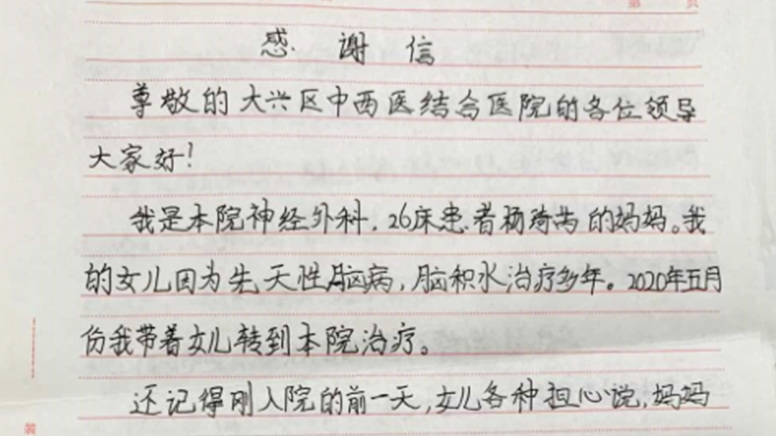 第 页
感谢信
尊敬的大兴区中西医结合医院的各位领导
大家好!
我是本院神经外科,26床患者杨 的妈妈。我
的女儿因为先天性脑病,脑积水治疗多年。2020年五月
份我带着女儿转到本院治疗。
还记得刚入院的前一天,女儿各种担心说,妈妈
装